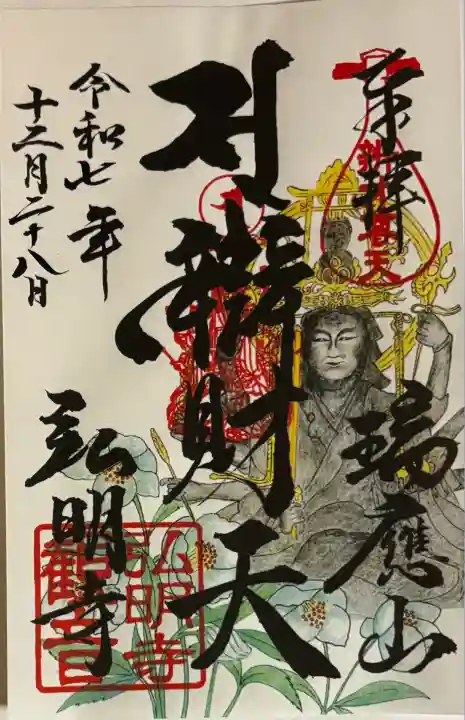 奉拝
瑞應山
辯財天
弘明寺
令和七年
十二月二十八日
弘明寺
観音